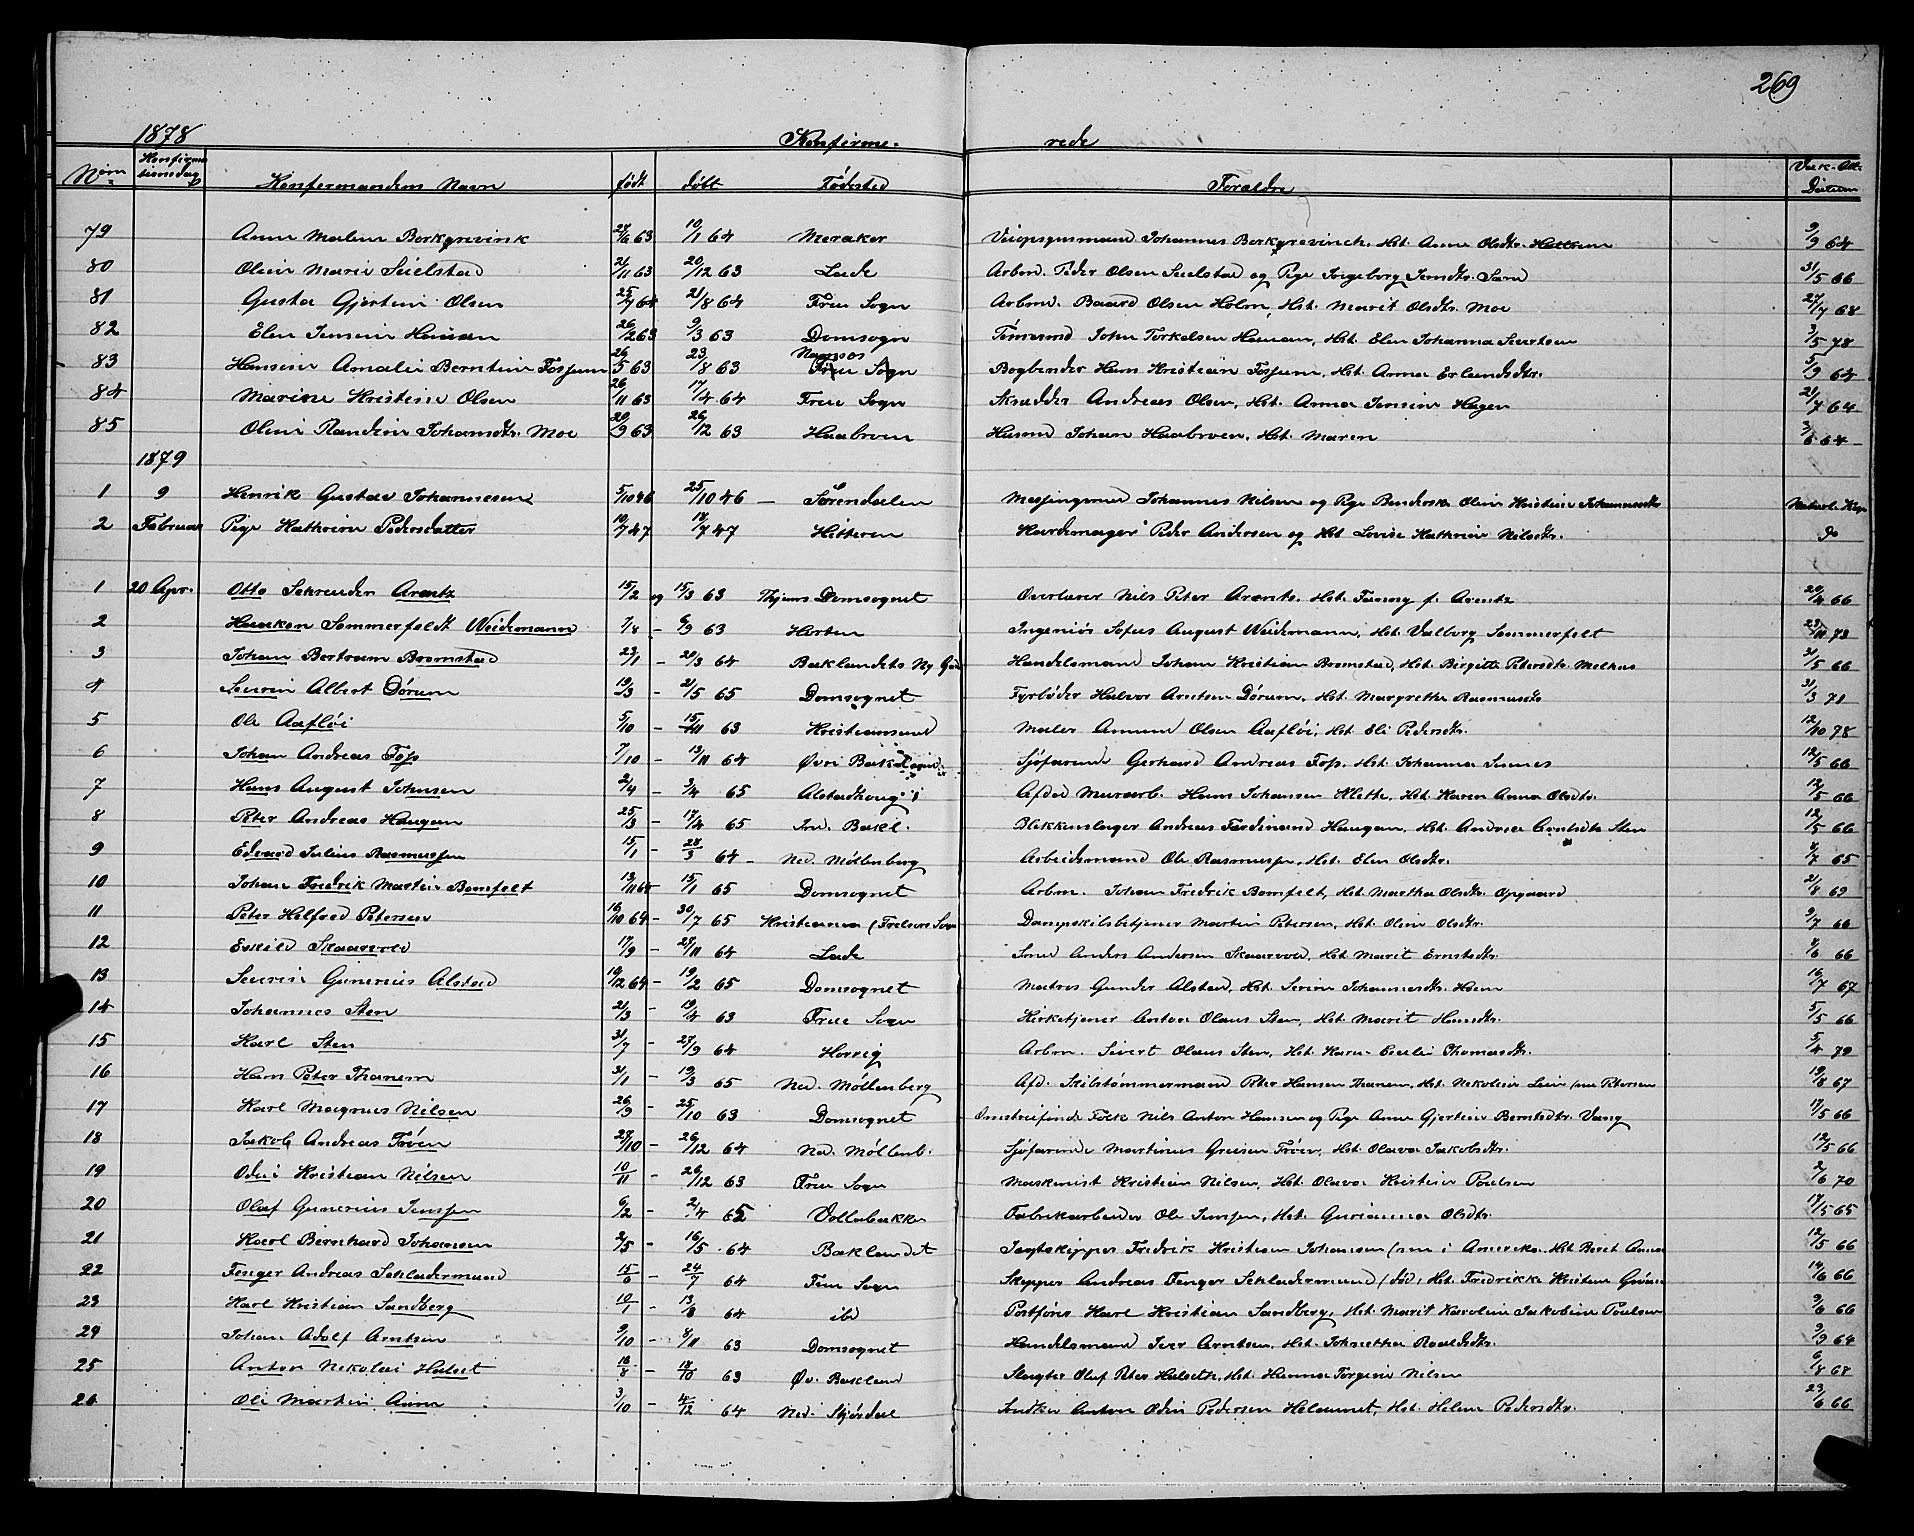 269
1878 Konfirme- rede
Num Konfirmationsdag Konfirmandens Navn født døbt Fødested Forældre Vak.-Att. Datum
79 Anne Malene Borkgrevink 27/6 63 10/1 64 Meraker Johannes Borkgrevinck, Hst. Anne Olsdtr. 9/9 64
80 Oline Marie Seielstad 21/11 63 20/12 63 Lade Arbm. Peder Olsen Seielstad og Pige Ingeborg Sand 31/5 66
81 Gusta Gjertine Olsen 25/7 64 21/8 64 Frue Sogn Arbmd. Baard Olsen Holm, Hst. Marit Olsdtr. Moe 27/7 68
82 Elen Jensine Hauan 26/2 63 9/3 63 Domsogn Tømmermd John Torkelsen Hauan, Hst. Elen Johanna Sivertsen 3/5 78
83 Hansine Amalie Berntine Fosjum 26/5 63 23/8 63 Namsos Frue Sogn Bogbinder Hans Kristian Fosjum, Hst. Anna Erlandsdtr. 5/9 64
84 Marine Kristine Olsen 26/11 63 17/4 64 Frue Sogn Skrædder Andreas Olsen, Hst. Anna Jensine Hagen 21/7 64
85 Oline Randine Johansdtr. Moe 20/9 63 26/12 63 Haabroen Husmd Johan Haabroen, Hst. Maren 3/6 64
1879
1 9 Henrik Gustav Johannesen 5/10 46 25/10 46 – Sørendalen Messingsmed Johannes Nilsen og Pige Oline Kristine Johannesdtr
2 Februar Pige Kathrine Pedersdatter 10/7 47 18/7 47 Hitteren Peder Andersen og Hst Lovise Kathrine Nilsdtr. do
1 20 Apr. Otto Schreuder Arentz 15/2 og 15/3 63 Domsognet Overlærer Nils Peter Arentz, Hst. Fanny f. Arentz 20/4 66
2 Haakon Sommerfeldt Weidemann 7/8 – 6/9 63 Horten Ingeniør Sofus August Weidemann, Hst. Valborg Sommerfelt 23/11 73
3 Johan Bertram Bromstad 23/1 – 20/3 64 Baklandets Ny Handelsmand Johan Kristian Bromstad, Hst. Birgitte Pedersdtr. Melhus 31/5 66
4 Sevrin Albert Dørum 19/3 – 21/5 65 Domsognet Fyrbøder Halvor Arntsen Dørum, Hst. Margrethe Rasmusdtr 31/3 71
5 Ole Aafløi 5/10 – 15/11 63 Kristiansund Maler Amund Olsen Aafløi, Hst. Eli Pedersdtr. 12/10 78
6 Johan Andreas Foss 7/10 – 13/11 64 Øvre Bakl Sjøfarende Gerhard Andreas Foss. Hst. Johanna 12/5 66
7 Hans August Johnsen 2/4 – 3/4 65 Alstadhoug Afdød Murarb. Hans Johansen Klette, Hst. Karen Anna Olsdtr. 12/5 66
8 Peter Andreas Haugan 25/3 – 17/4 65 Ind. Bakl. Blikkenslager Andreas Ferdinand Haugan, Hst. Andrea Arntsdtr. Sten 12/5 66
9 Edvard Julius Rasmussen 15/1 – 28/3 64 – Ned. Møllenberg Arbeidsmand Ole Rasmussen, Hst. Elen Olsdtr. 4/7 65
10 Johan Fredrik Martin Bomfelt 13/11 64 15/1 65 Domsognet Arbm. Johan Fredrik Bomfelt, Hst. Martha Olsdtr. Opgaard 21/8 69
11 Peter Helfred Petersen 16/10 64 – 30/7 65 Kristiania (Frelsers Sogn Dampskibsbetjener Martin Petersen, Hst. Oline Olsdtr. 9/7 66
12 Eskild Skaarvold 17/9 – 27/11 64 Lade Smed Anders Andersen Skaarvold, Hst. Marit Erntsdtr. 4/6 66
13 Sevrin Gunerius Alstad 19/12 64 – 19/2 65 Domsognet Matros Gunder Alstad, Hst. Serine Johannesdtr. Hoem 16/7 67
14 Johannes Sten 21/3 – 19/4 63 Frue Sogn Kirketjener Anton Olaus Sten, Hst. Marit Hansdtr. 5/5 66
15 Karl Sten 31/7 – 27/9 64 Horrig Arbm. Sivert Olaus Sten, Hst. Karen Cecilie Thomasdtr. 5/4 79
16 Hans Peter Thanem 31/1 – 19/3 65 Ned. Møllenberg Afd. Skibstømmermand Peter Hansen Thanem, Hst. Nikoline Petersen 19/8 67
17 Karl Magnus Nilsen 26/9 – 25/10 63 Domsognet Omstreifende Folk Nils Anton Hansen og Pige Anne Gjertine Berntsdtr. Vang 17/5 66
18 Jakob Andreas Frøen 27/10 – 26/12 64 Ned. Møllenb. Sjøfarende Martinus Frøen, Hst. Olava Jakobsdtr. 12/5 66
19 Odin Kristian Nilsen 10/11 – 26/12 63 Frue Sogn Maskinist Kristian Nilsen, Hst. Olava Kristine Poulsen 2/6 70
20 Olaf Gunerius Jenssen 6/2 – 2/4 65 Vollabakken Fabrikarbeider Ole Jenssen, Hst. Gurianna Olsdtr. 17/5 65
21 Karl Bernhard Johansen 2/5 – 16/5 64 Baklandet Jagtskipper Fredrik Kristian Johansen (nu i Amerika, Hst. Beret Anna 12/5 66
22 Fenger Andreas Schladermund 15/6 – 24/7 64 Frue Sogn Skipper Andreas Fenger Schladermund (død, Hst. Fredrikke Kristine 14/6 66
23 Karl Kristian Sandberg 10/1 – 13/3 64 ibd Postfører Karl Kristian Sandberg, Hst. Marit Karoline Jakobine Poulsen 9/6 66
24 Johan Adolf Arntsen 9/10 – 8/11 63 Domsognet Handelsmand Iver Arntsen, Hst. Johnetha Roaldsdtr. 9/9 64
25 Anton Nikolai Halset 16/8 – 18/10 63 Øv. Bakland Slagter Olaf Peter Halseth, Hst. Hanna Jørgine Nilsen 6/8 68
26 Ole Martin Aune 3/10 – 4/12 64 Ned. Stjørdal Snedker Anton Odin Pedersen Helaunet, Hst. Helene Pedersdtr. 23/6 66